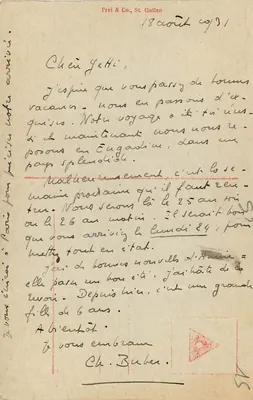 Frei & Co., St. Gallen
18 août 1931
Chère Yetti,
J'espère que vous passez de bonnes
vacances. nous en passons d'ex-
quises. Notre voyage a été réus-
si et maintenant nous nous re-
posons en Engadine, dans un
pays splendide.
Malheureusement, c'est la se-
maine prochaine qu'il faut ren-
trer. Nous serons là le 25 au soir
ou le 26 au matin. Il serait bon
que vous arriviez le lundi 24, pour
mettre tout en état.
J'ai de bonnes nouvelles d'
elle passe un bon été. J'ai hâte de la
revoir. Depuis hier, c'est une grande
fille de 6 ans.
A bientôt.
Je vous embrasse
Ch.
Je vous écrirai à Paris pour préciser notre arrivée.